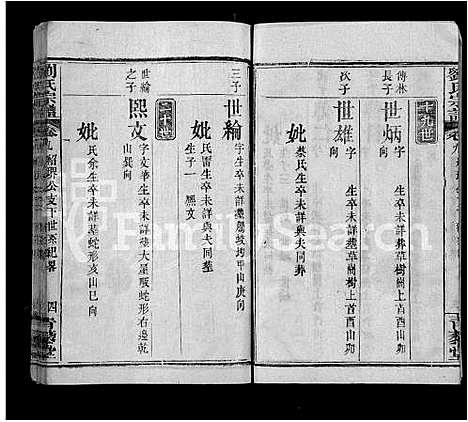 十九世
傳林
長子
世炳
字 生卒未詳葬草樹崗上首酉山卯
向
次子
世雄
字 生卒未詳葬草樹崗上首酉山卯
向
妣
蔡氏生卒未詳與夫同葬
三子
世綸
字 生卒未詳葬 甲山庚向
妣
氏雷生卒未詳與夫同葬
生子一 熙文
二十世
世綸
之子
熙文
字文華生卒未詳葬大星 蛇形右邊乾
山巽向
妣
氏余生卒未詳葬蛇形亥山巳向
劉氏宗譜
卷九 紹 公支下世系紀畧
四
青藜堂
FamilySearch